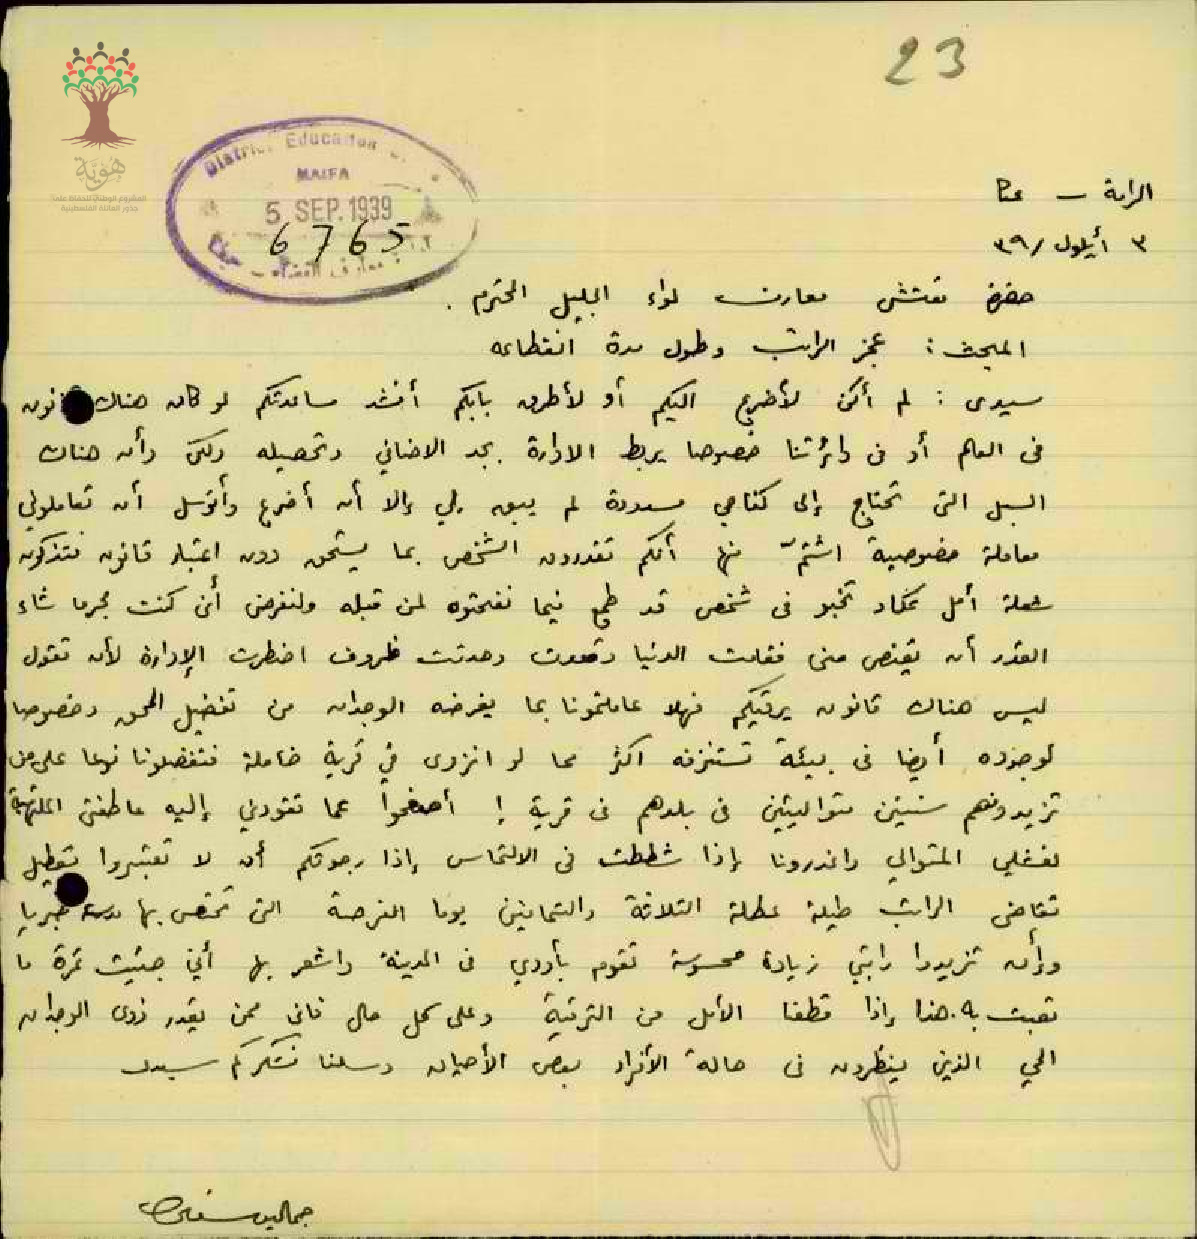 23
هُويَّة
المشروع الوطني للحفاظ على
جذور العائلة الفلسطينية
District Education
HAIFA
5 SEP. 1939
6765
معارف القضاء - حيفا
الرامة - عكا
٣ أيلول /٣٩
حضرة مفتش معارف لواء الجليل المحترم .
المبحث : عجز الراتب وطول مدة انقطاعه
سيدى : لم أكن لأضرع اليكم أو لأطرق بابكم أنشد مساعدتكم لو كان هناك قانون
فى العالم أو فى دائرتنا خصوصا يربط الادارة بجد الاضافي وتحصيله ولكن وأن هناك
السبل التى تحتاج إلى كفاحي مسدودة لم يبق لي إلا أن أضرع وأتوسل أن تعاملوني
معاملة خصوصية اشتمّ منها أنكم تقدرون الشخص بما يستحق دون اعتبار قانون فتذكون
شعلة أمل تكاد تخبو فى شخص قد طمع فيما نفحتوه لمن قبله ولنفرض أنى كنت مجرما شاء
القدر أن يقتص منى فقامت الدنيا وقعدت وحدثت ظروف اضطرت الإدارة لأن تقول
ليس هناك قانون يرقيكم فهلا عاملتمونا بما يفرضه الوجدان من تفضيل المحق وخصوصا
لوجوده أيضا فى بيئة تستنزفه اكثر مما لو انزوى في قرية خاملة فتفضلونا نوعا على من
تزيدونهم سنتين متواليتين فى بلدهم فى قرية ! أصفحوا عما تقودني إليه عاطفتى الملتهبة
لفشلي المتوالي واعذرونا إذا شططت فى الالتماس إذا رجوتكم أن لا تعتبروا تعطيل
تقاضى الراتب طيلة عطلة الثلاثة والثمانين يوما الفرصة التى تختص بها مدرسة طبريا
وإن تزيدوا راتبي زيادة محسوسة تقوم بأودي فى المدينة واشعر بها أني جنيت ثمرة ما
تعبت به . هذا إذا قطفنا الأمل من الترقية وعلى كل حال فانى ممن يقدر ذوى الوجدان
الحي الذين ينظرون فى حالة الأفراد بعض الأحيان وسلفا نشكركم سيدى